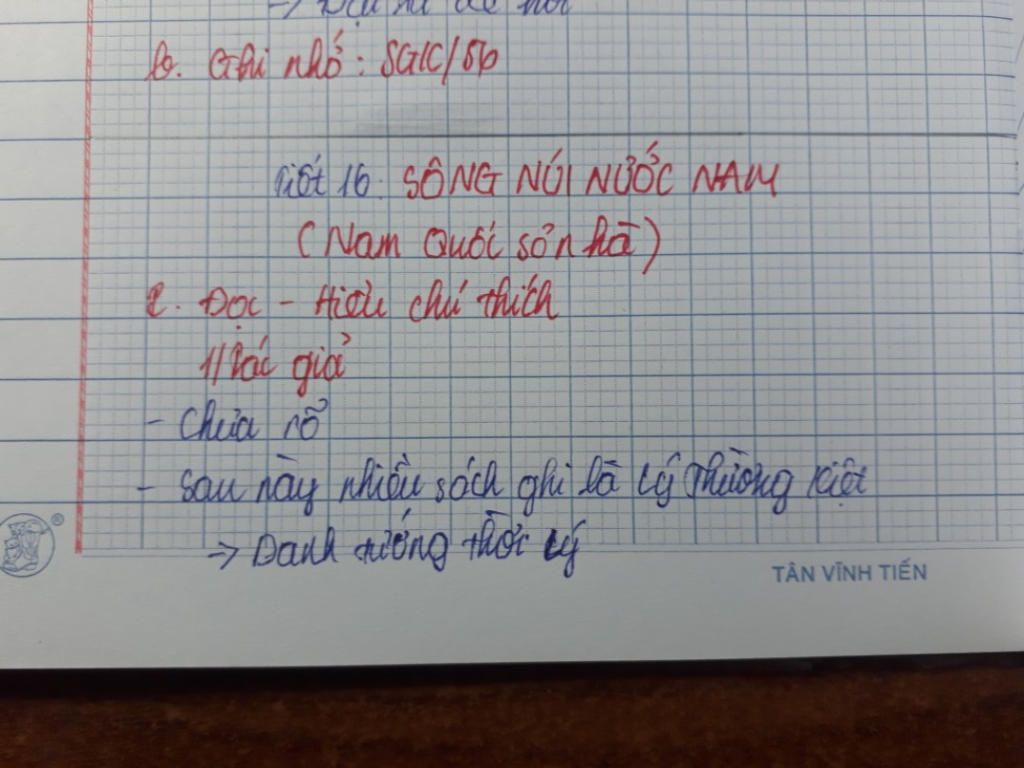 b. Ghi nhớ: SGK/56
Tiết 16. SÔNG NÚI NƯỚC NAM
(Nam Quốc sơn hà)
I. Đọc - Hiểu chú thích
1/ Tác giả
- Chưa rõ
- Sau này nhiều sách ghi là Lý Thường Kiệt
-> Danh tướng thời Lý
®
TÂN VĨNH TIẾN